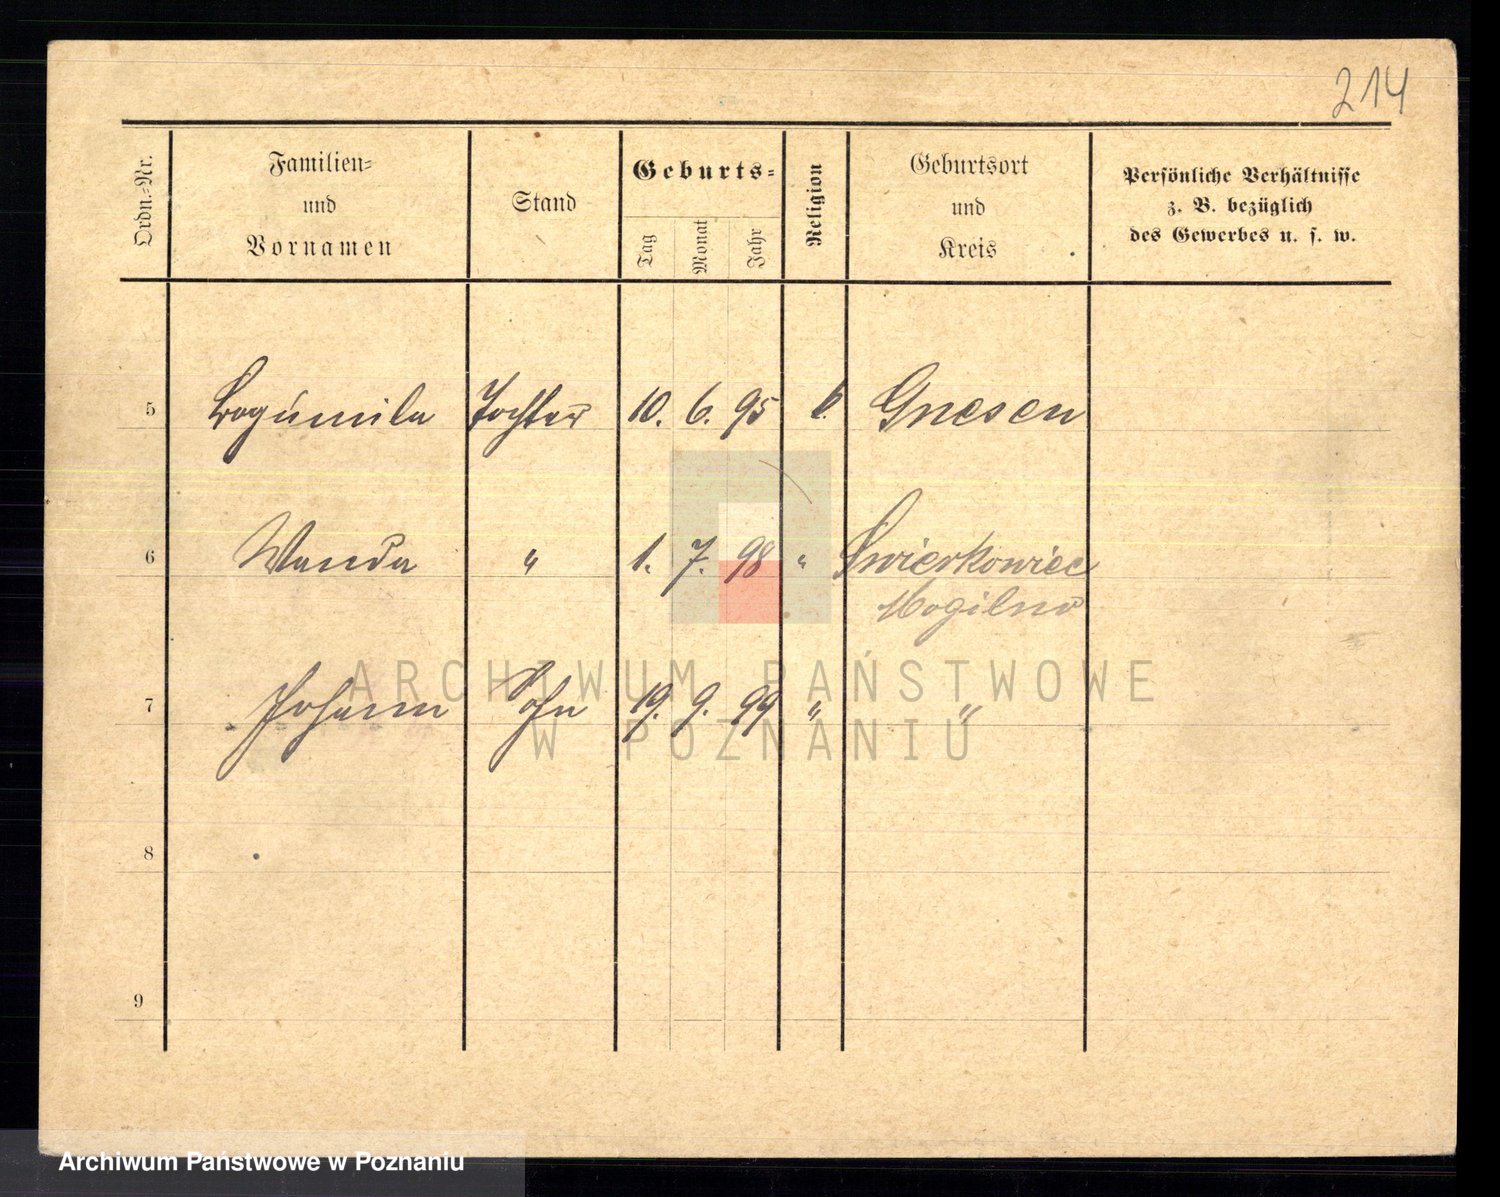 214
Ordn.-Nr.
Familien-
und
Vornamen
Stand
Geburts-
Tag
Monat
Jahr
Religion
Geburtsort
und
Kreis
Persönliche Verhältnisse
z. B. bezüglich
des Gewerbes u. s. w.
5 Bogumila Tochter 10. 6. 95 k. Gnesen
6 Wanda " 1. 7. 98 " Swierkowiec
Mogilno
7 Johann Sohn 19. 9. 99 " "
8
9
ARCHIWUM PAŃSTWOWE
W POZNANIU
Archiwum Państwowe w Poznaniu